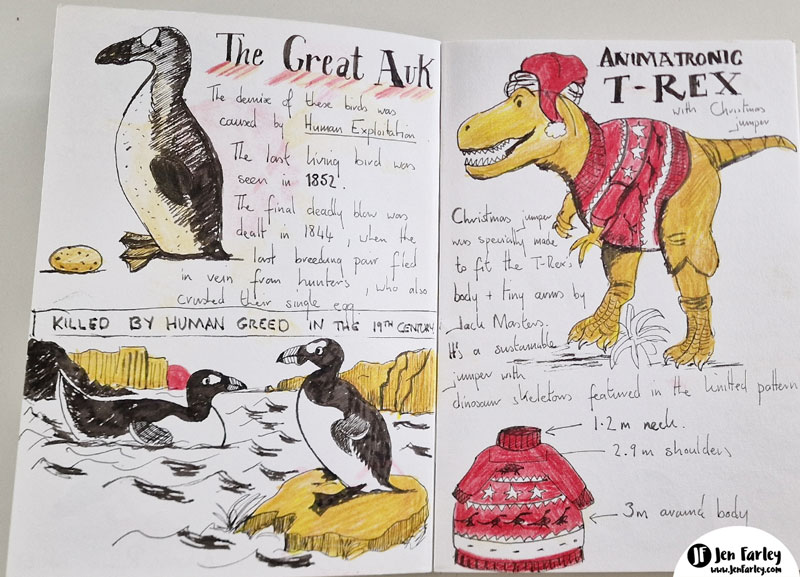 The Great Auk
The demise of these birds was
caused by Human Exploitation
The last living bird was
seen in 1852.
The final deadly blow was
dealt in 1844, when the
last breeding pair fled
in vein from hunters, who also
crushed their single egg
KILLED BY HUMAN GREED IN THE 19TH CENTURY
ANIMATRONIC
T-REX
with Christmas
jumper
Christmas jumper
was specially made
to fit the T-Rex's
body + tiny arms by
Jack Masters.
It's a sustainable
jumper with
dinosaur skeletons featured in the knitted pattern
1.2m neck.
2.9m shoulders
3m around body
JF Jen Farley
www.JenFarley.com